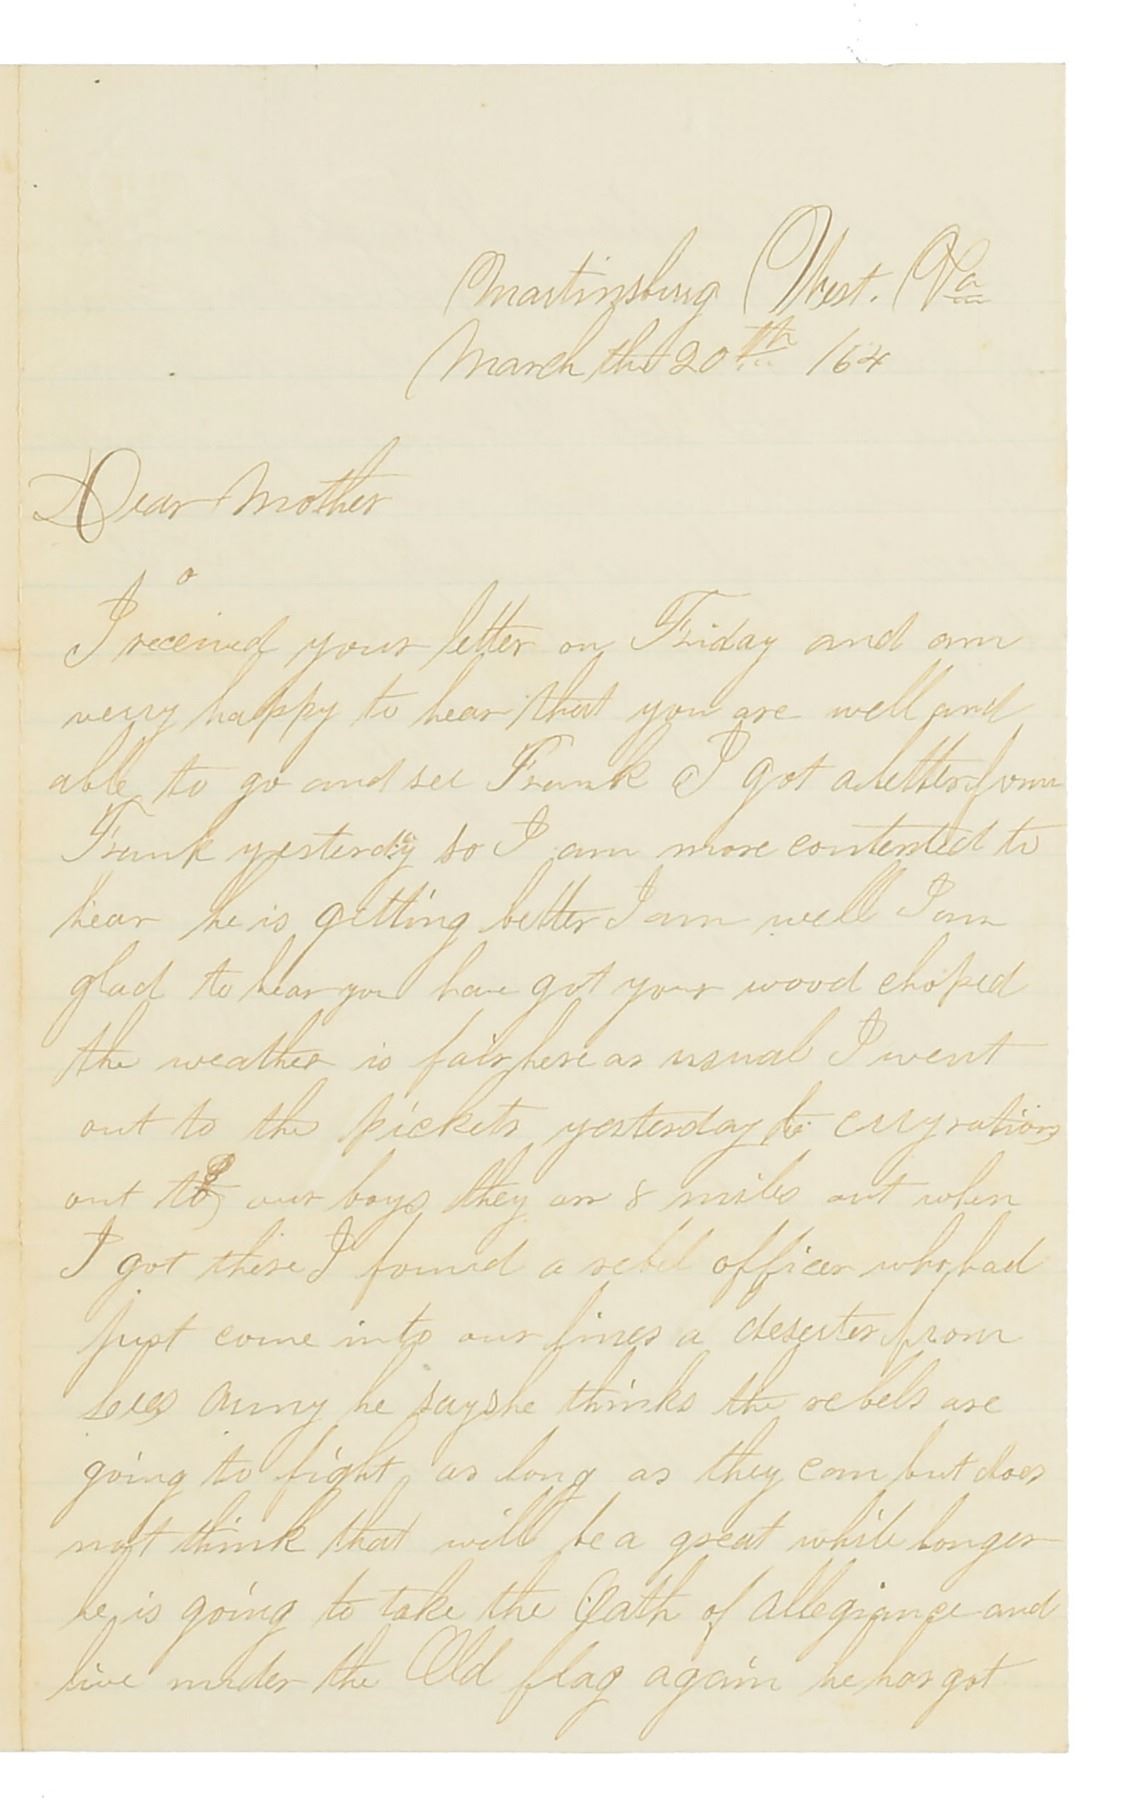 Martinsburg West. Va
March the 20th /64
Dear Mother
I received your letter on Friday and am
very happy to hear that you are well and
able to go and see Frank I got a letter from
Frank yesterday so I am more contented to
hear he is getting better I am well I am
glad to hear you have got your wood choped
the weather is fair here as usual I went
out to the pickets yesterday to cary rations
out to our boys they are 8 miles out when
I got there I found a rebel officer who had
just come into our lines a deserter from
Lees Army he says he thinks the rebels are
going to fight as long as they can but does
not think that will be a great while longer
he is going to take the Oath of Allegiance and
live under the Old flag again he has got